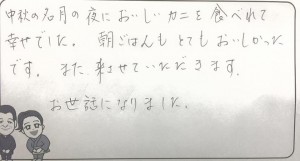 中秋の名月の夜においしいカニを食べれて
幸せでした。朝ごはんもとてもおいしかった
です。また来させていただきます。
お世話になりました。